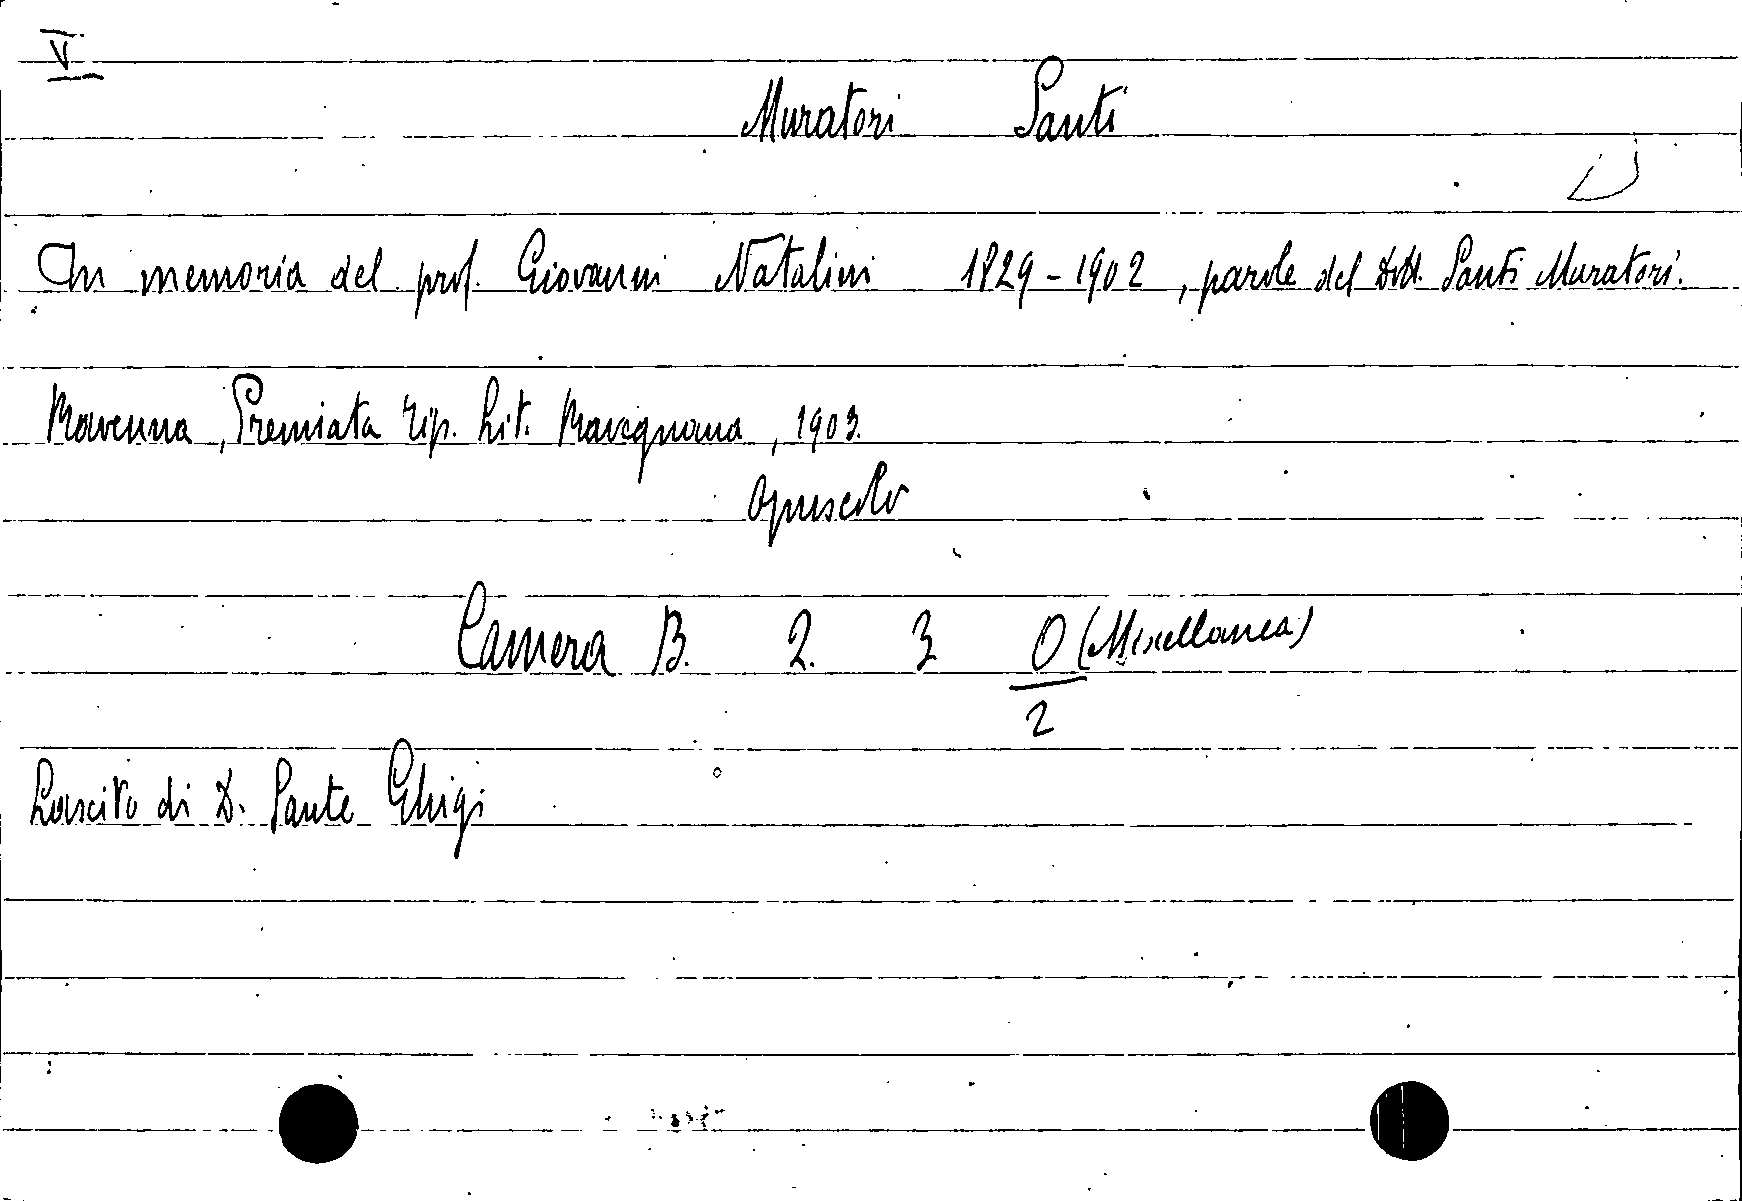 V
Muratori Santi
In memoria del prof. Giovanni Natalini 1829-1902, parole del Dott. Santi Muratori.
Ravenna, Premiata Tip. Lit. Ravegnana, 1903.
opuscolo
Camera B. 2. 3 0 (Miscellanea)
2
Lascito di D. Sante Ghigi